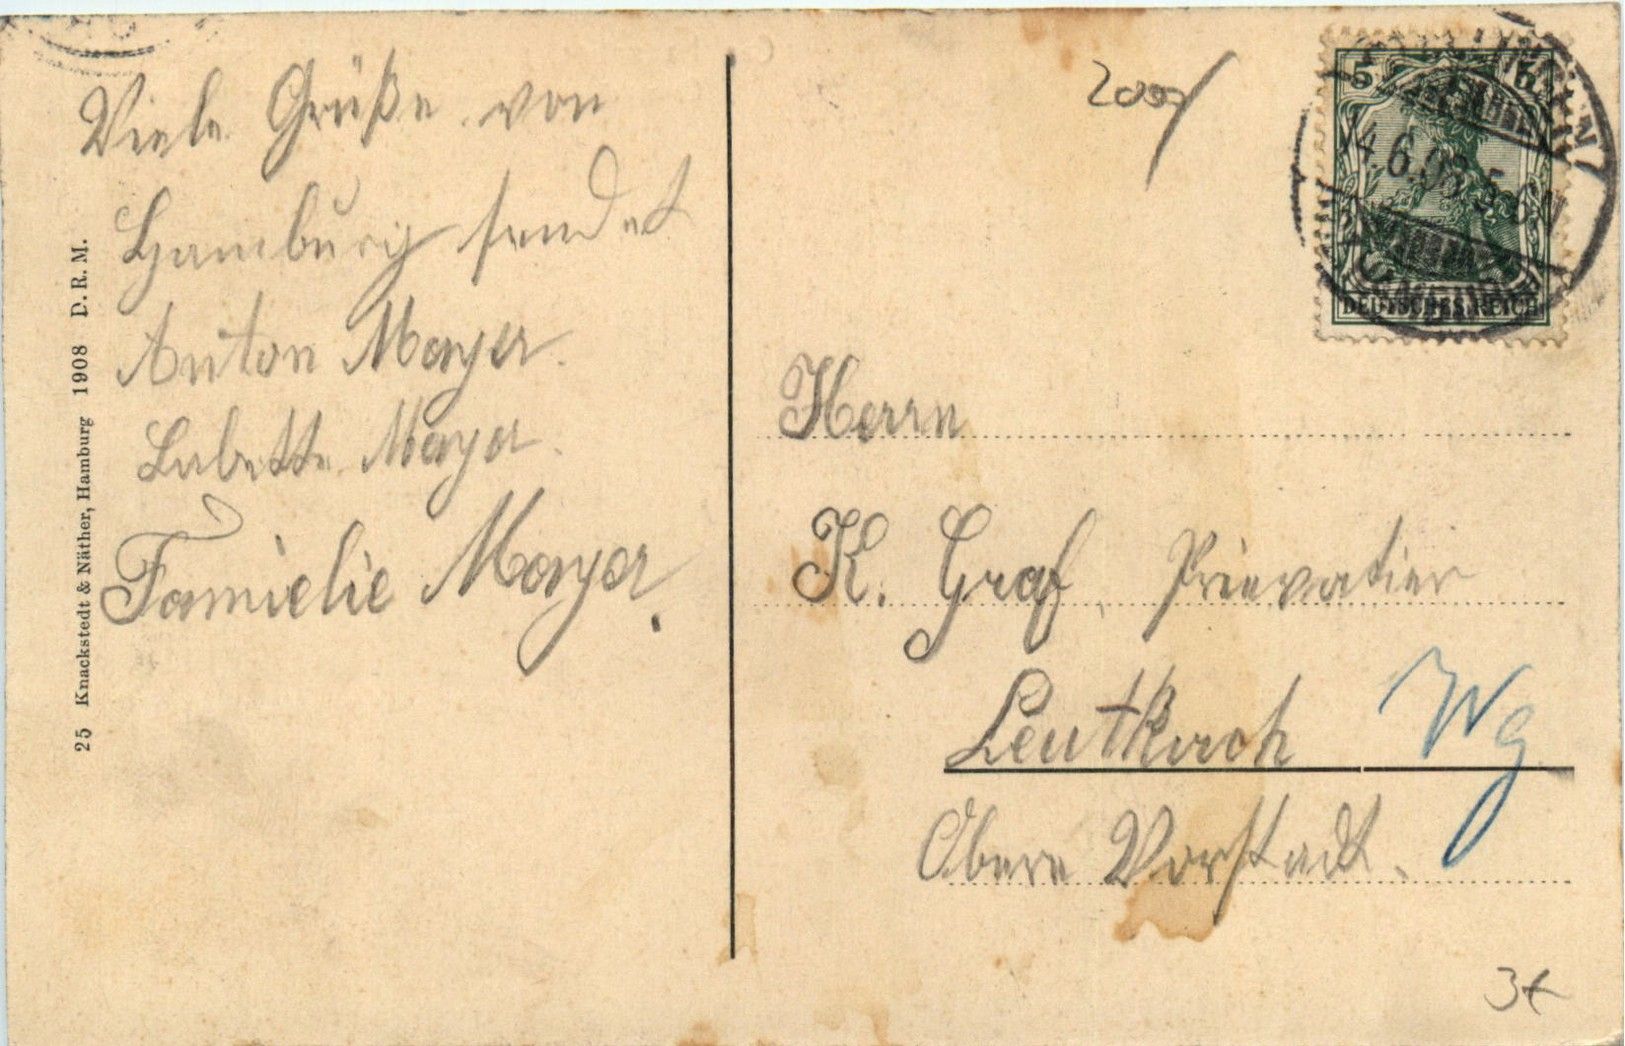 Viele Grüße von
Hamburg sendet
Anton Mayer.
Babette Mayer.
Famielie Mayer.
25 Knackstedt & Näther, Hamburg 1908 D. R. M.
5
14.6.08. 5-6 N
DEUTSCHES REICH
Herrn
K. Graf, Prievatier
Leutkirch
Wg
Obere Vorstadt.
3€